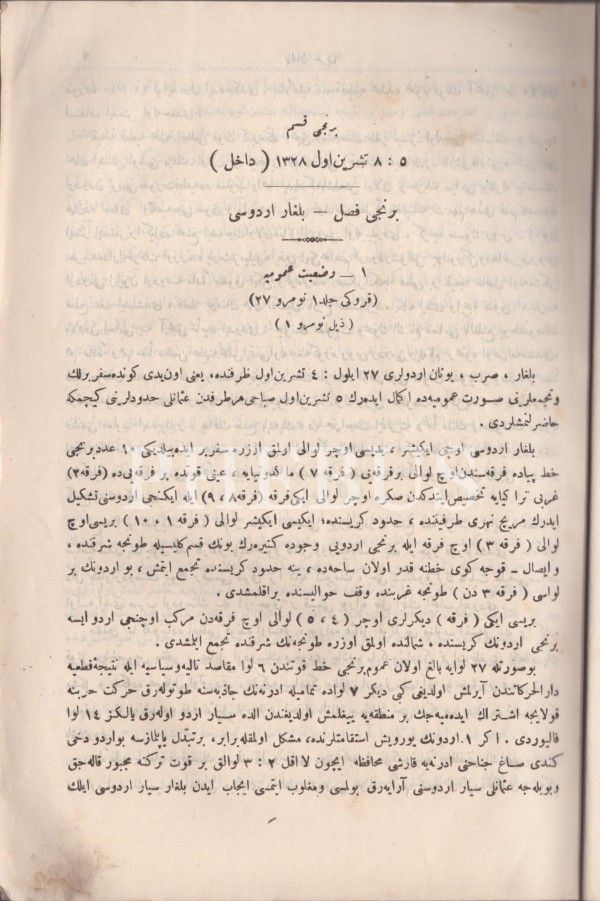 برنجی قسم
٥ : ٨ تشرین اول ١٣٢٨ ( داخل )
برنجی فصل — بلغار اردوسی
١ — وضعیت عمومیه
(قروکی جلد ١ نومرو ٢٧)
( ذیل نومرو ١ )
بلغار ، صرب ، یونان اردولری ٢٧ ایلول : ٤ تشرین اول ظرفنده، یعنی اون یدی کونده سفربرلك
وتجمعلرینی صورت عمومیه‌ده اکمال ایده‌رك ٥ تشرین اول صباحی هر طرفدن عثمانلی حدودلرینی کچمکه
حاضرلنمشلردی .
بلغار اردوسی اوچی ایکیشر ، یدیسی اوچر لوالی اولمق اوزره سفربر ایده‌بیلدیکی ١٠ عدد برنجی
خط پیاده فرقه‌سندن اوچ لوالی بر فرقه‌یی ( فرقه ٧ ) ماکدونیایه ، عینی قوتده بر فرقه‌یی‌ده (فرقه ٢)
غربی تراکیایه تخصیص ایتدکدن صکره اوچر لوالی ایکی فرقه (فرقه ٨ ، ٩) ایله ایکنجی اردوسنی تشکیل
ایدرك مریج نهری طرفیننده ، حدود کریسنده؛ ایکیسی ایکیشر لوالی ( فرقه ١ ، ١٠ ) بریسی اوچ
لوالی ( فرقه ٣ ) اوچ فرقه ایله برنجی اردویی وجوده کتیره‌رك بونك قسم کلیسیله طونجه شرقنده ،
وایصال - قوجه کوی خطنه قدر اولان ساحه‌ده ، ینه حدود کریسنده تجمع ایتمش ، بو اردونك بر
لواسی ( فرقه ٣ دن ) طونجه غربنده وقف حوالیسنده براقلمشدی .
بریسی ایکی ( فرقه ) دیکرلری اوچر ( ٤ ، ٥ ) لوالی اوچ فرقه‌دن مرکب اوچنجی اردو ایسه
برنجی اردونك کریسنده ، شمالنده اولمق اوزره طونجه‌نك شرقنده تجمع ایتمشدی .
بو صورتله ٢٧ لوایه بالغ اولان عموم برنجی خط قوتندن ٦ لوا مقاصد تالیه وسیاسیه ایله نتیجهٔ قطعیه
دار الحرکاتندن آیرلمش اولدیغی کبی دیکر ٧ لواده تمامیله ادرنه‌نك جاذبه‌سنه طوتوله‌رق حرکت حربنه
قولایجه اشتراك ایده‌میه‌جك بر منطقه‌یه ییغلمش اولدیغندن الده سیار اردو اوله‌رق یالکز ١٤ لوا
قالیوردی . اکر ١. اردونك یورویش استقامتلرنده، مشکل اولمقله برابر، بر تبدل یاپلمازسه بو اردو دخی
کندی صاغ جناحنی ادرنه‌یه قارشی محافظه ایچون لااقل ٢ : ٣ لوالق بر قوت ترکنه مجبور قاله‌جق
وبویله‌جه عثمانلی سیار اردوسنی آرایه‌رق بولمسی ومغلوب ایتمسی ایجاب ایدن بلغار سیار اردوسی ایلك